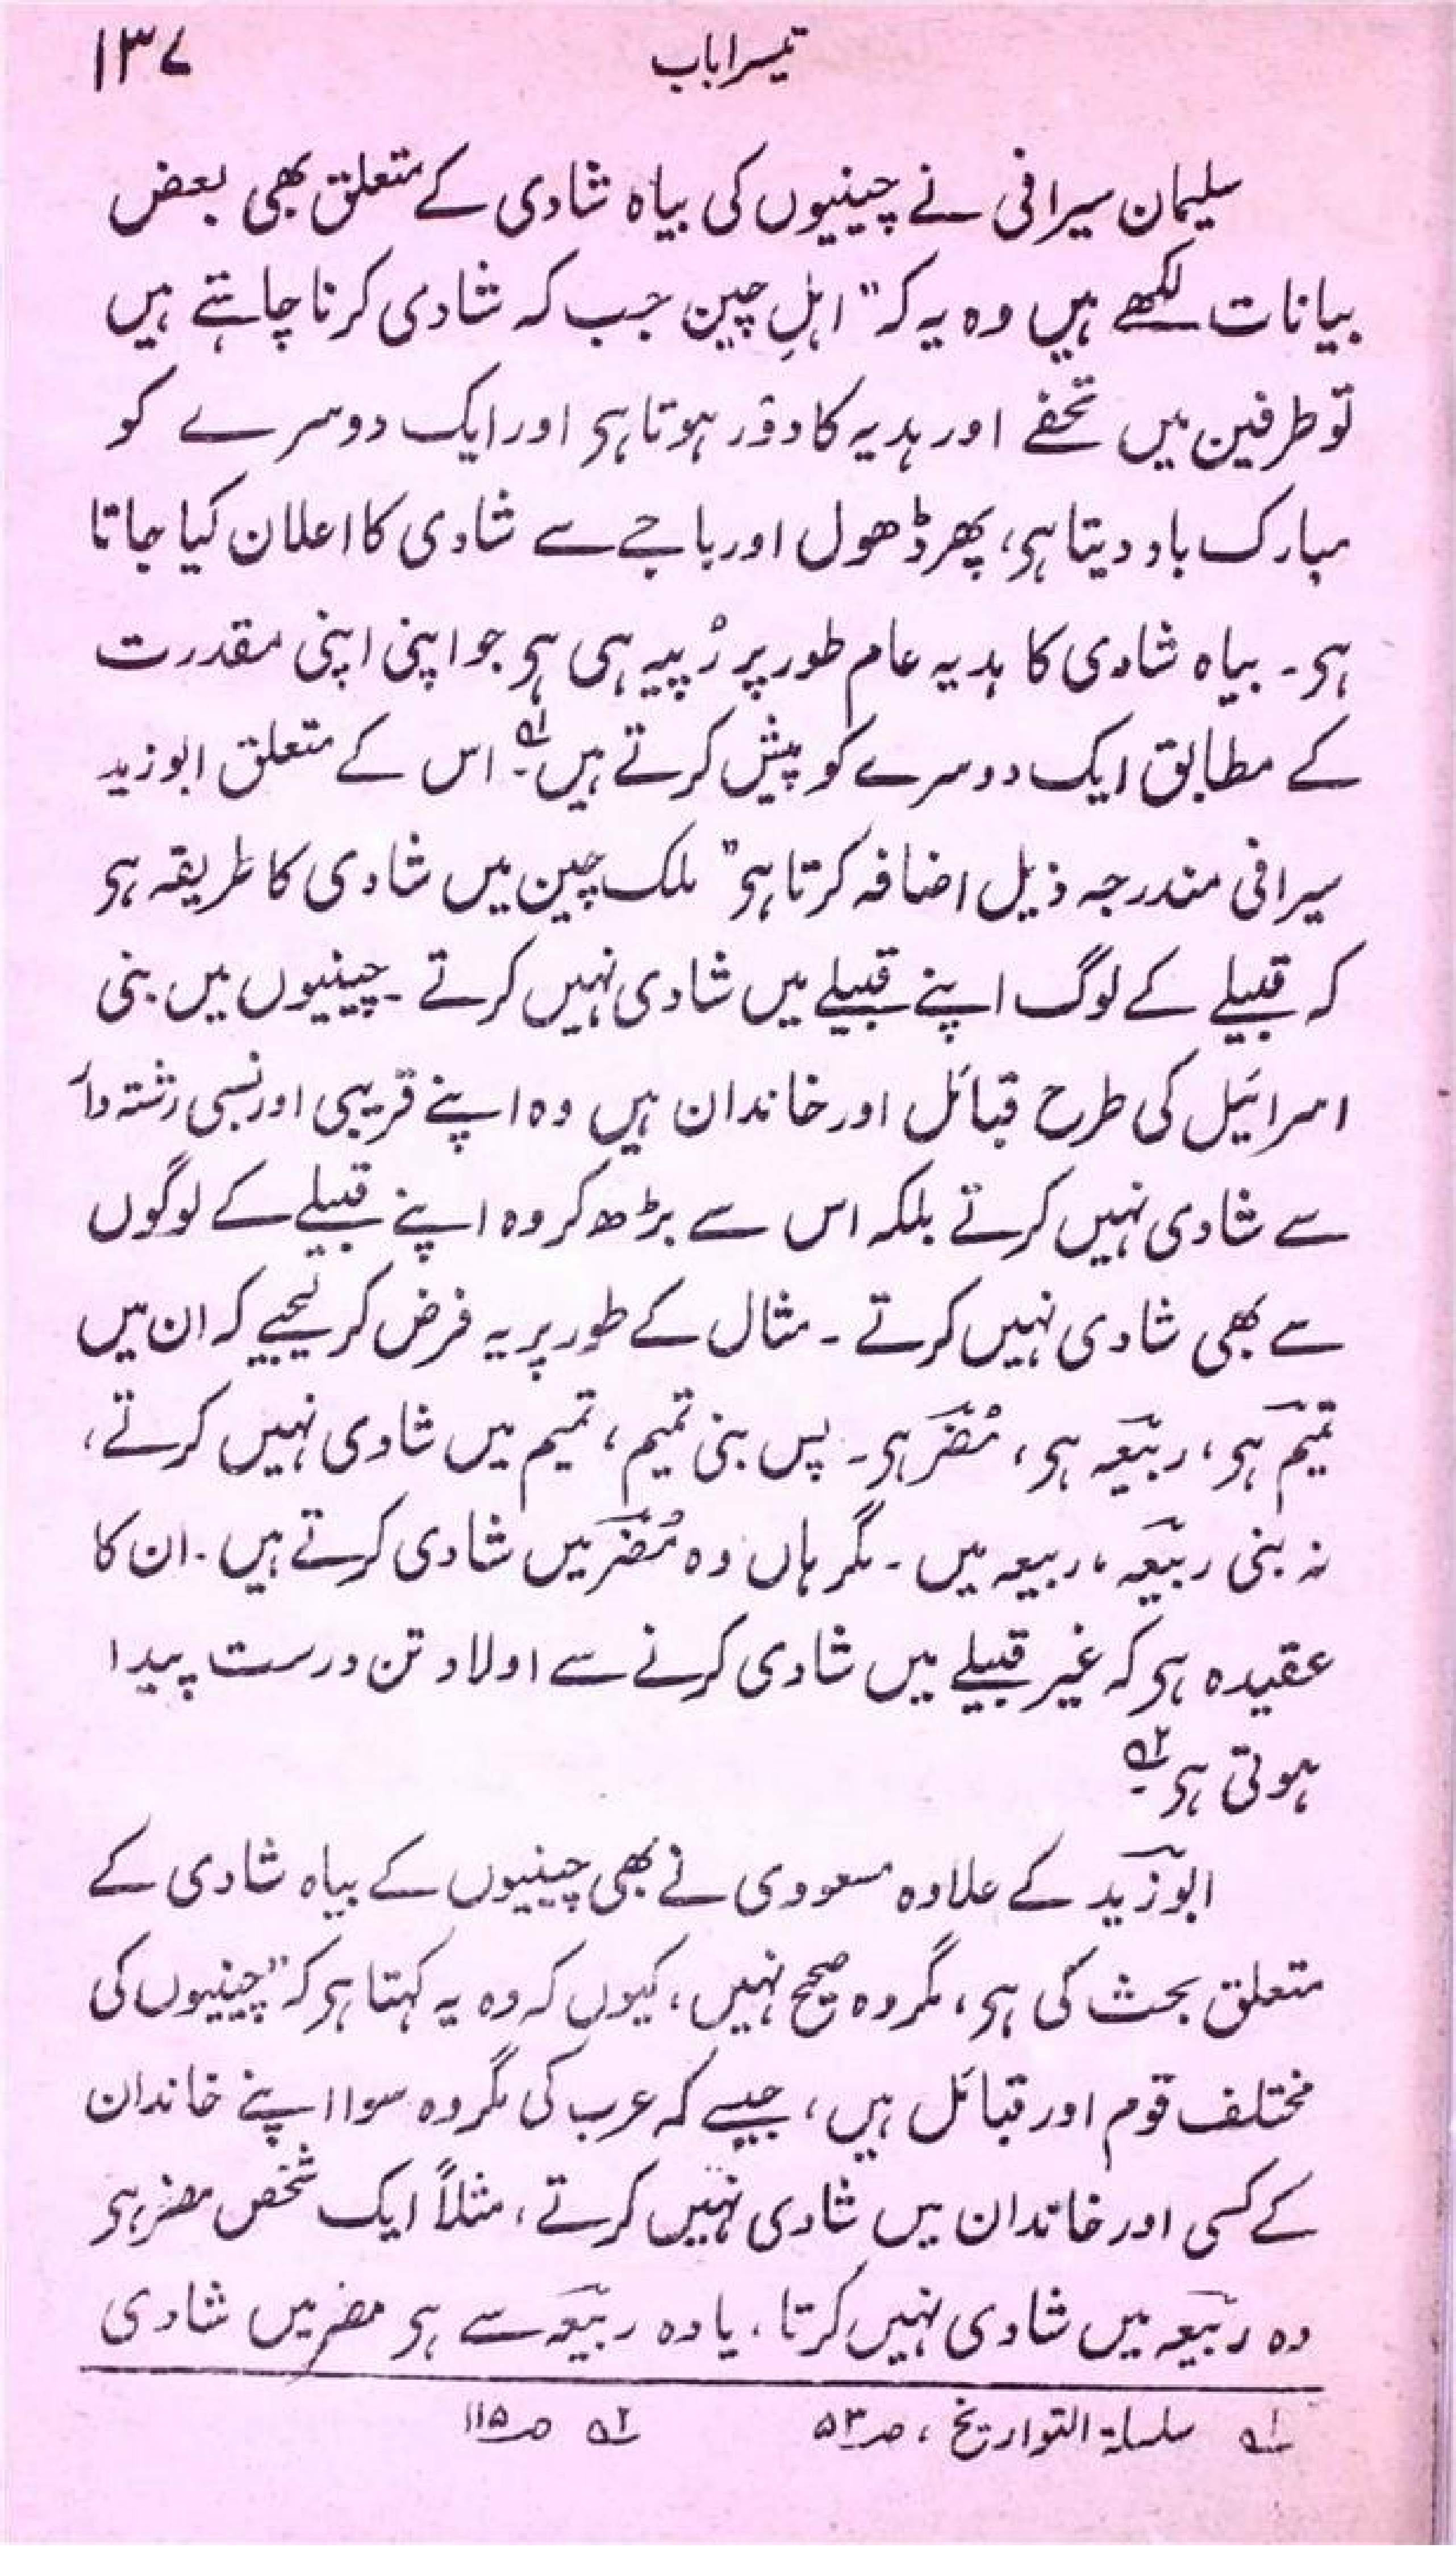 تیسرا باب ۱۳۷
سلیمان سیرافی نے چینیوں کی بیاہ شادی کے متعلق بھی بعض
بیانات لکھے ہیں وہ یہ کہ "اہلِ چین جب کہ شادی کرنا چاہتے ہیں
تو طرفین میں تحفے اور ہدیہ کا دَور ہوتا ہی اور ایک دوسرے کو
مبارک باد دیتا ہی، پھر ڈھول اور باجے سے شادی کا اعلان کیا جاتا
ہی۔ بیاہ شادی کا ہدیہ عام طور پر رُپیہ ہی ہی جو اپنی اپنی مقدرت
کے مطابق ایک دوسرے کو پیش کرتے ہیں۔ لہ اس کے متعلق ابوزید
سیرافی مندرجہ ذیل اضافہ کرتا ہی "ملک چین میں شادی کا طریقہ ہی
کہ قبیلے کے لوگ اپنے قبیلے میں شادی نہیں کرتے۔ چینیوں میں بنی
اسرائیل کی طرح قبائل اور خاندان ہیں وہ اپنے قریبی اور نسبی رشتہ دار
سے شادی نہیں کرتے بلکہ اس سے بڑھ کر وہ اپنے قبیلے کے لوگوں
سے بھی شادی نہیں کرتے۔ مثال کے طور پر یہ فرض کر لیجیے کہ ان میں
تمیم ہی، ربیعہ ہی، مُضَر ہی۔ پس بنی تمیم، تمیم میں شادی نہیں کرتے،
نہ بنی ربیعہ، ربیعہ میں۔ مگر ہاں وہ مُضَر میں شادی کرتے ہیں۔ ان کا
عقیدہ ہی کہ غیر قبیلے میں شادی کرنے سے اولاد تن درست پیدا
ہوتی ہی۔ ۲ہ
ابوزید کے علاوہ مسعودی نے بھی چینیوں کے بیاہ شادی کے
متعلق بحث کی ہی، مگر وہ صحیح نہیں، کیوں کہ وہ یہ کہتا ہی کہ "چینیوں کی
مختلف قوم اور قبائل ہیں، جیسے کہ عرب کی مگر وہ سوا اپنے خاندان
کے کسی اور خاندان میں شادی نہیں کرتے، مثلاً ایک شخص مضر ہی
وہ ربیعہ میں شادی نہیں کرتا، یا وہ ربیعہ سے ہی مضر میں شادی
لہ سلسلۃ التواریخ، صـ ۵۳ ۲ہ صـ ۱۱۵